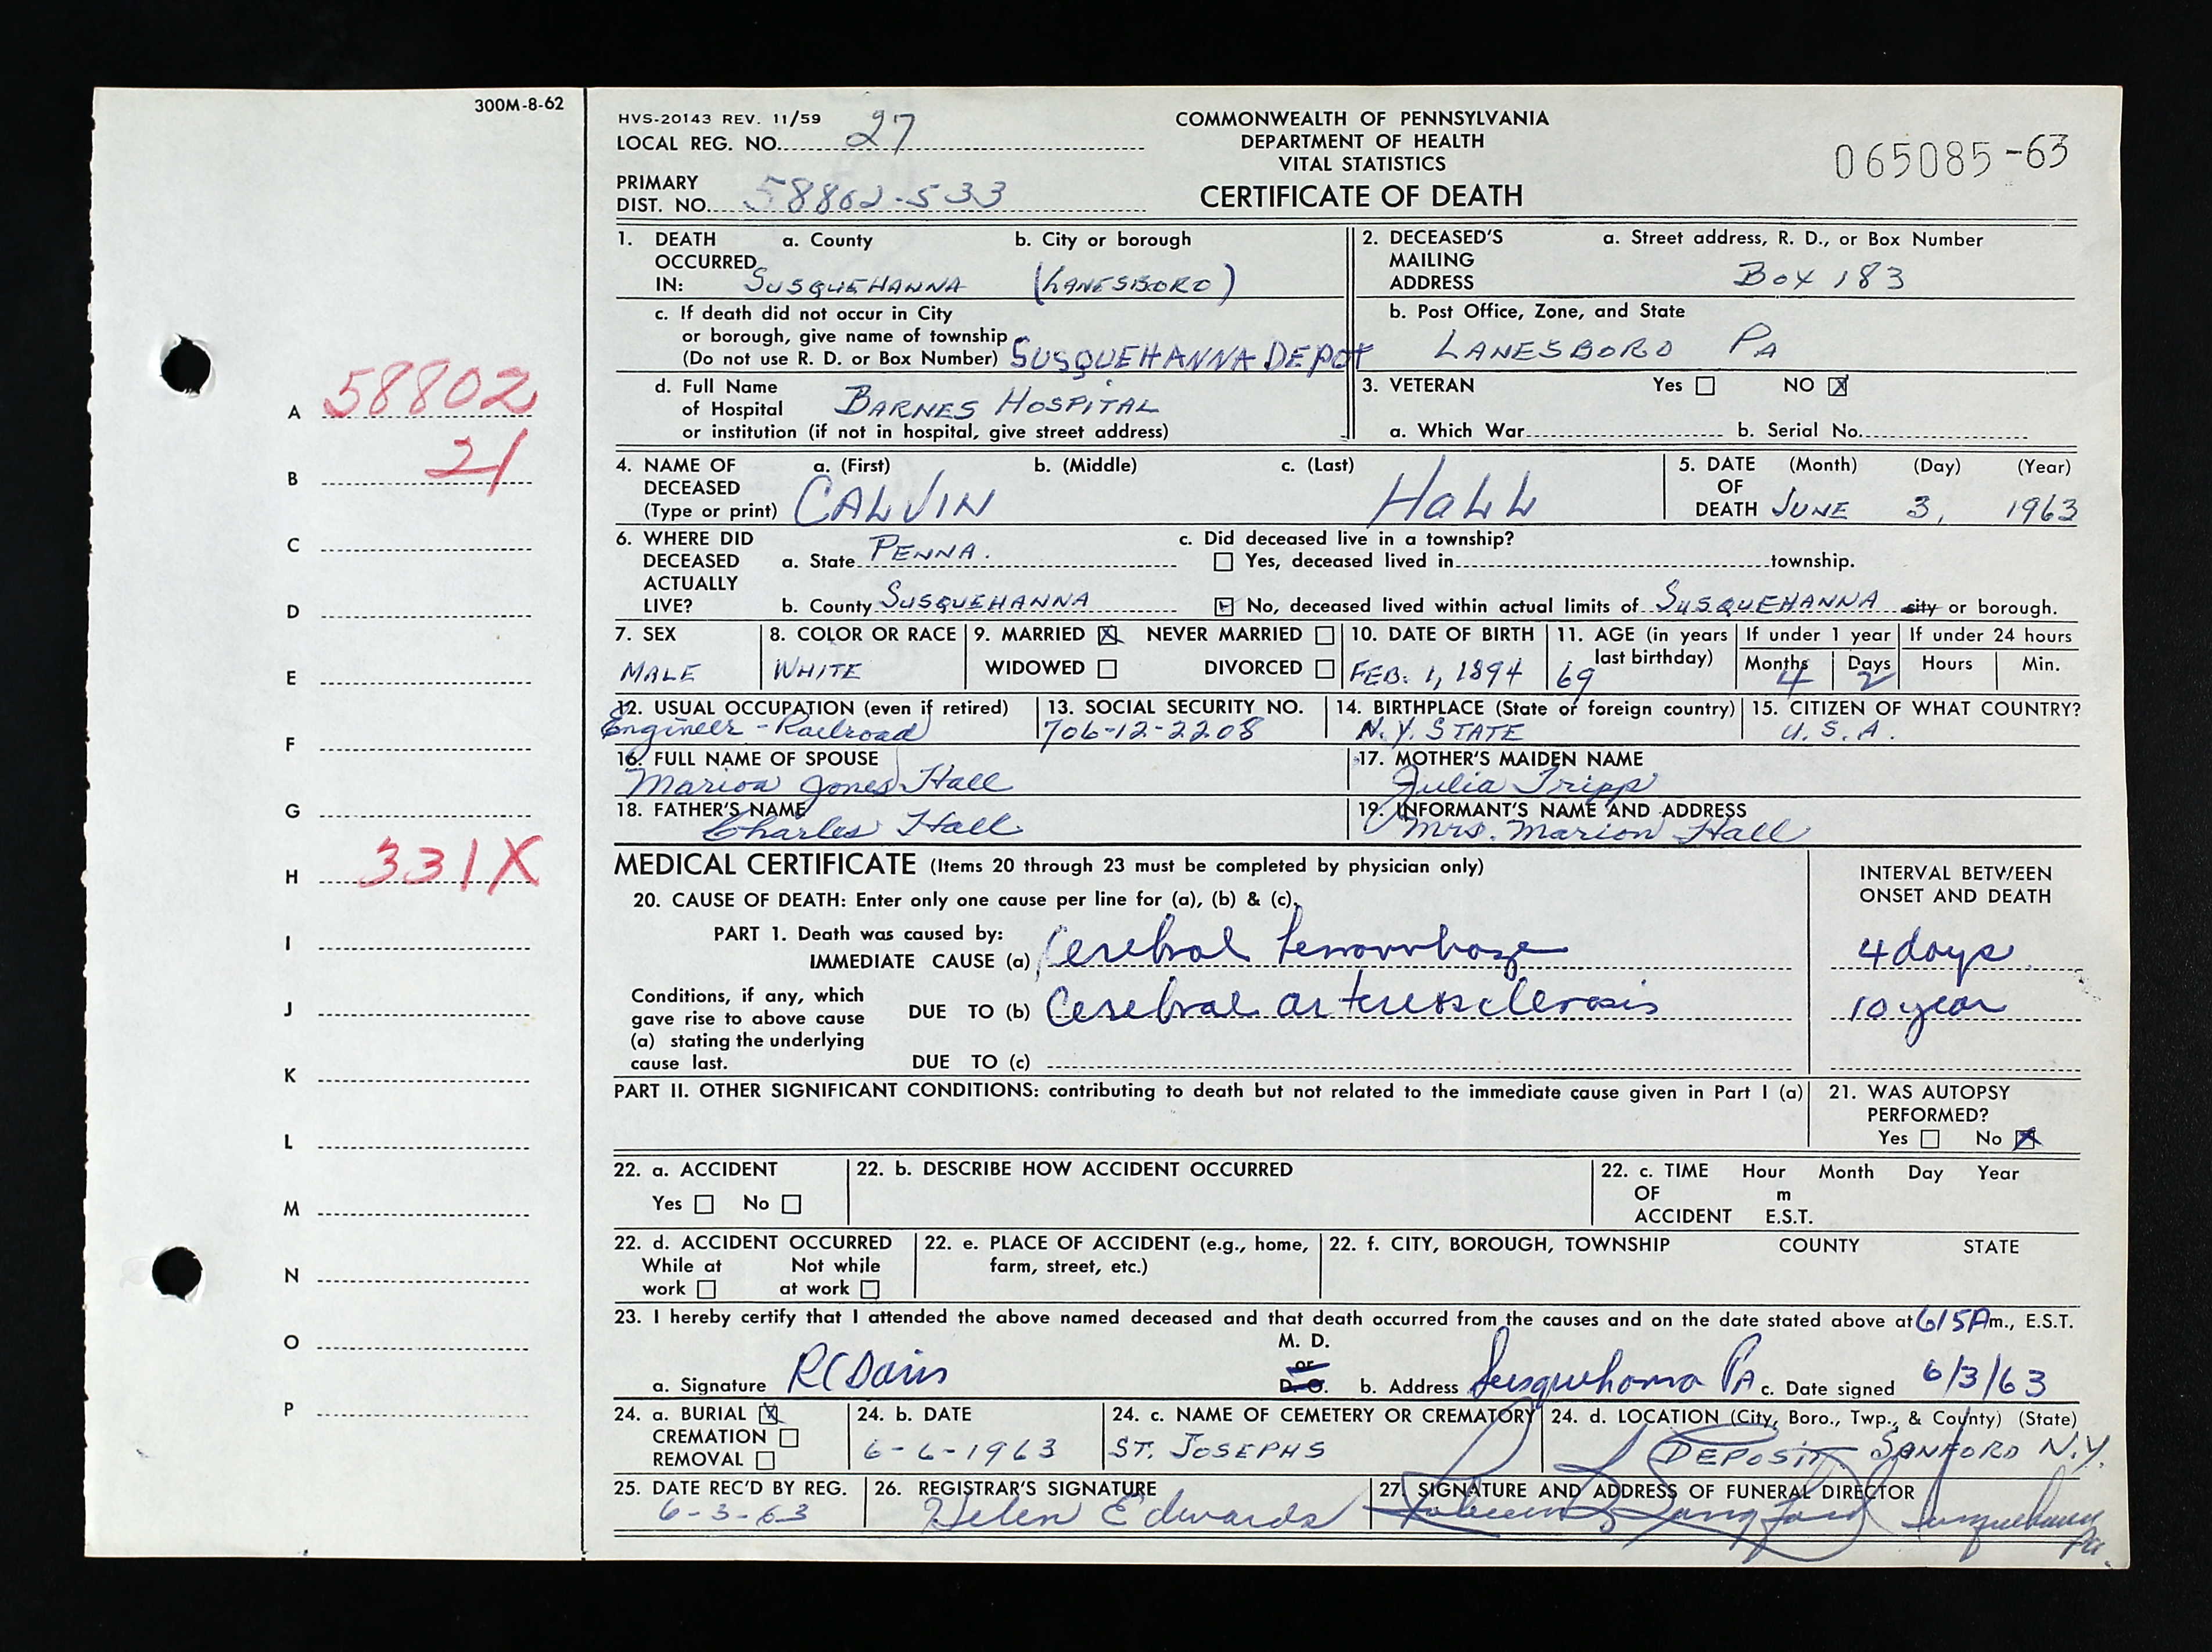 300M-8-62
HVS-20143 REV. 11/59
LOCAL REG. NO. 27
PRIMARY
DIST. NO. 58802-533
COMMONWEALTH OF PENNSYLVANIA
DEPARTMENT OF HEALTH
VITAL STATISTICS
CERTIFICATE OF DEATH
065085-63
1. DEATH OCCURRED IN: a. County SUSQUEHANNA b. City or borough (LANESBORO)
c. If death did not occur in City
or borough, give name of township
(Do not use R. D. or Box Number) SUSQUEHANNA DEPOT
d. Full Name
of Hospital BARNES HOSPITAL
or institution (if not in hospital, give street address)
2. DECEASED'S MAILING ADDRESS a. Street address, R. D., or Box Number
BOX 183
b. Post Office, Zone, and State
LANESBORO PA
3. VETERAN Yes NO X
a. Which War b. Serial No.
4. NAME OF DECEASED (Type or print) a. (First) b. (Middle) c. (Last)
CALVIN HALL
5. DATE OF DEATH (Month) (Day) (Year)
JUNE 3, 1963
6. WHERE DID DECEASED ACTUALLY LIVE?
a. State PENNA.
b. County SUSQUEHANNA
c. Did deceased live in a township?
Yes, deceased lived in township.
No, deceased lived within actual limits of SUSQUEHANNA city or borough.
7. SEX
MALE
8. COLOR OR RACE
WHITE
9. MARRIED X NEVER MARRIED
WIDOWED DIVORCED
10. DATE OF BIRTH
FEB. 1, 1894
11. AGE (in years last birthday)
69
If under 1 year If under 24 hours
Months Days Hours Min.
4 2
12. USUAL OCCUPATION (even if retired)
Engineer - Railroad
13. SOCIAL SECURITY NO.
706-12-2208
14. BIRTHPLACE (State or foreign country)
N.Y. STATE
15. CITIZEN OF WHAT COUNTRY?
U.S.A.
16. FULL NAME OF SPOUSE
Marion Jones Hall
17. MOTHER'S MAIDEN NAME
Julia Tripp
18. FATHER'S NAME
Charles Hall
19. INFORMANT'S NAME AND ADDRESS
Mrs. Marion Hall
MEDICAL CERTIFICATE (Items 20 through 23 must be completed by physician only)
INTERVAL BETWEEN
ONSET AND DEATH
20. CAUSE OF DEATH: Enter only one cause per line for (a), (b) & (c).
PART 1. Death was caused by:
IMMEDIATE CAUSE (a) Cerebral hemorrhage 4 days
Conditions, if any, which
gave rise to above cause
(a) stating the underlying
cause last.
DUE TO (b) Cerebral arteriosclerosis 10 year
DUE TO (c)
PART II. OTHER SIGNIFICANT CONDITIONS: contributing to death but not related to the immediate cause given in Part I (a)
21. WAS AUTOPSY
PERFORMED?
Yes No X
22. a. ACCIDENT
Yes No
22. b. DESCRIBE HOW ACCIDENT OCCURRED
22. c. TIME Hour Month Day Year
OF m
ACCIDENT E.S.T.
22. d. ACCIDENT OCCURRED
While at Not while
work at work
22. e. PLACE OF ACCIDENT (e.g., home,
farm, street, etc.)
22. f. CITY, BOROUGH, TOWNSHIP COUNTY STATE
23. I hereby certify that I attended the above named deceased and that death occurred from the causes and on the date stated above at 615A m., E.S.T.
M. D.
or
D. O.
a. Signature RC Davis b. Address Susquehanna PA c. Date signed 6/3/63
24. a. BURIAL X
CREMATION
REMOVAL
24. b. DATE
6-6-1963
24. c. NAME OF CEMETERY OR CREMATORY
ST. JOSEPHS
24. d. LOCATION (City, Boro., Twp., & County) (State)
DEPOSIT SANFORD N.Y.
25. DATE REC'D BY REG.
6-3-63
26. REGISTRAR'S SIGNATURE
Helen Edwards
27. SIGNATURE AND ADDRESS OF FUNERAL DIRECTOR
Susquehanna
Pa.
A 58802
B 21
C
D
E
F
G
H 331X
I
J
K
L
M
N
O
P